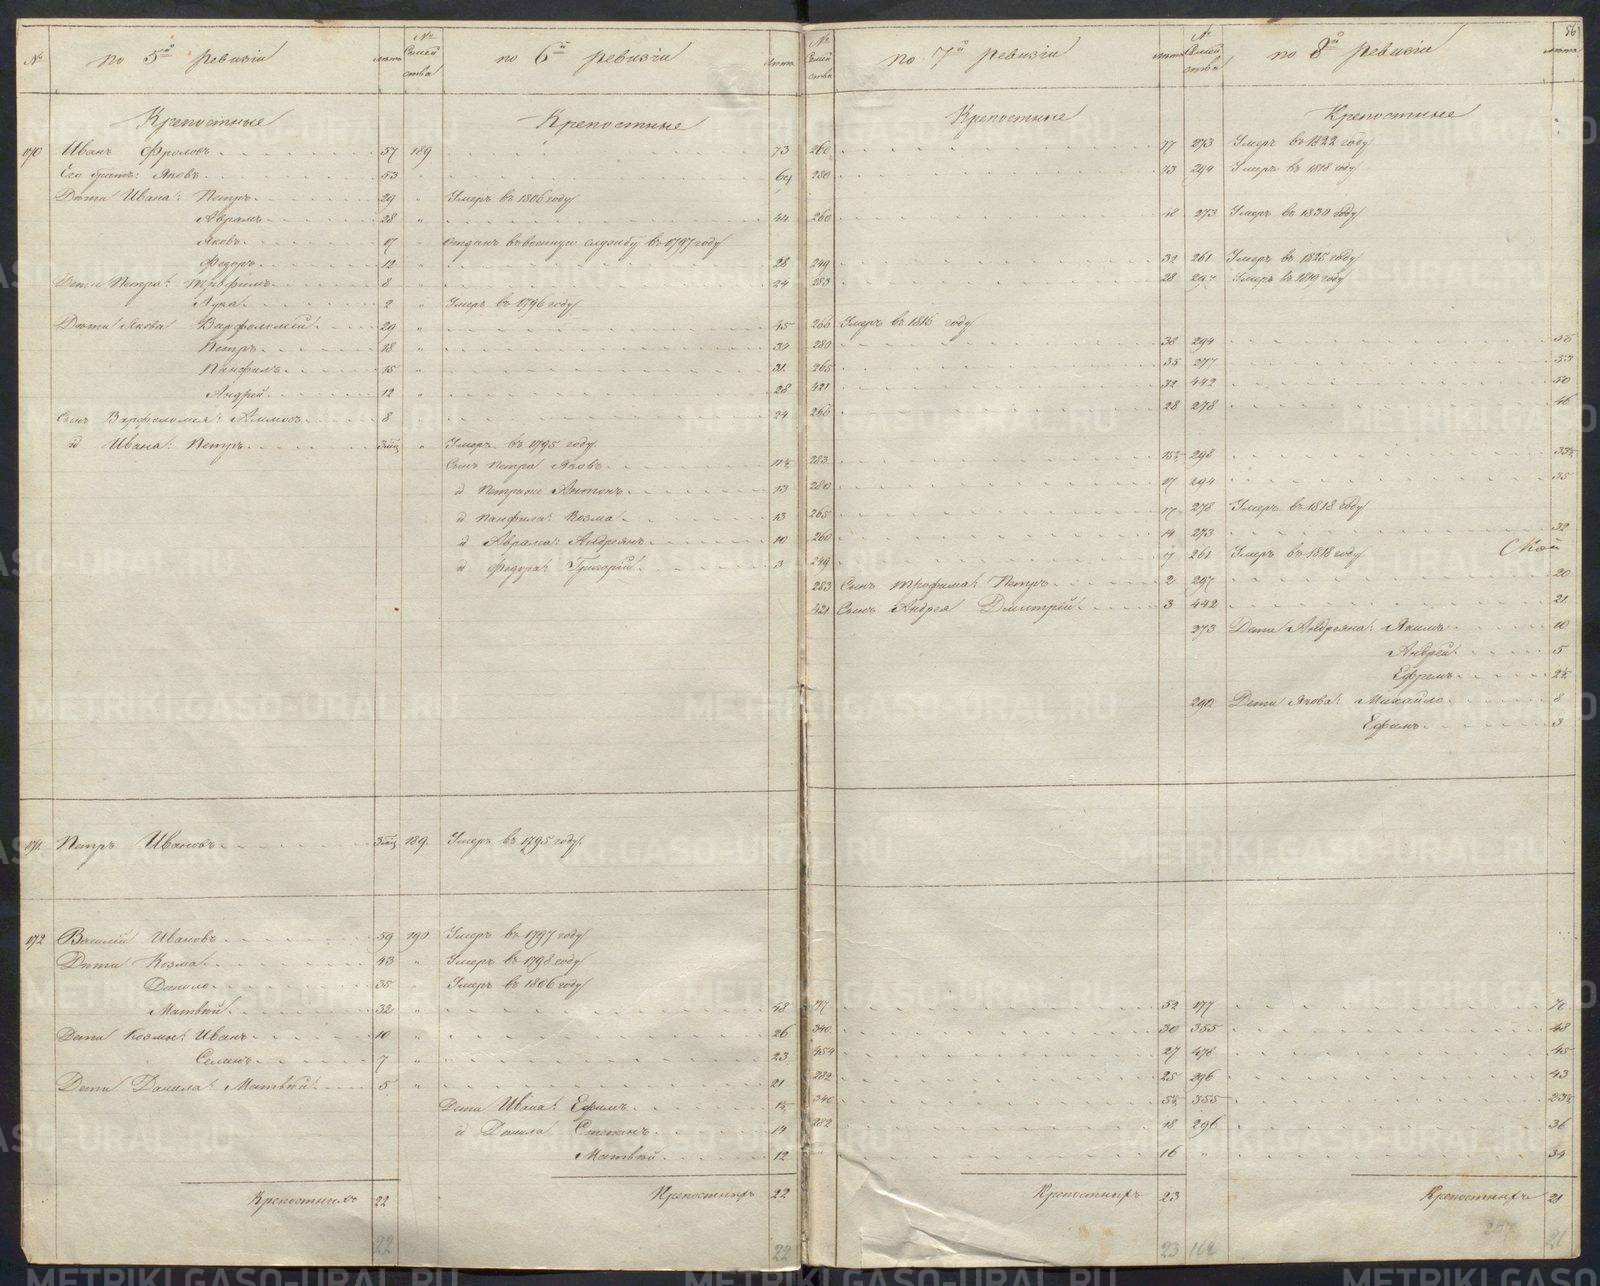 56
№ по 5й ревизіи лѣта № Семейства по 6й ревизіи лѣта № Семейства по 7й ревизіи лѣта № Семейства по 8й ревизіи лѣта
Крепостные Крепостные Крепостные Крепостные
170 Иванъ Фроловъ 57 189 73 262 77 273 Умеръ въ 1822 году
Его братъ: Яковъ 53 " 69 280 73 294 Умеръ въ 1818 году
Дѣти Ивана: Петръ 29 " Умеръ въ 1806 году
Аврамъ 28 " 44 260 48 273 Умеръ въ 1830 году
Яковъ 17 " отданъ въ военную службу въ 1797 году
Федоръ 12 " 28 249 32 261 Умеръ въ 1825 году
Дѣти Петра: Трофимъ 8 " 24 283 28 297 Умеръ въ 1819 году
Лука 2 " Умеръ въ 1796 году
Дѣти Якова Варфоломей 29 " 45 266 Умеръ въ 1816 году
Петръ 18 " 34 280 38 294
Панфилъ 15 " 31 265 35 277 53
Андрей 12 " 28 421 32 442 50
Сынъ Варфоломея: Аммосъ 8 24 266 28 278 46
и Ивана: Петръ 3 мѣц " Умеръ въ 1795 году
Сынъ Петра Яковъ 11½ 283 15½ 298 33½
и Петра же Антонъ 13 280 17 294 35
и Панфила: Козма 13 265 17 278 Умеръ въ 1818 году
и Аврама: Андреянъ 10 260 14 273 32
и Федора: Григорий 3 249 7 261 Умеръ въ 1818 году
283 Сынъ Трофима: Петръ 2 297 20
421 Сынъ Андрея Дмитрій 3 442 21
273 Дети Андреяна: Якимъ 10
Андрей 5
Ефремъ 2½
298 Дети Якова: Михайло 8
Ефимъ 3
171 Петръ Ивановъ 3 мѣц 189 Умеръ въ 1795 году
172 Василій Ивановъ 59 190 Умеръ въ 1797 году
Дети Козма 43 " Умеръ въ 1798 году
Данило 35 " Умеръ въ 1806 году
Матвѣй 32 " 48 177 52 177 70
Дети Козмы: Иванъ 10 " 26 340 30 355 48
Семенъ 7 " 23 454 27 478 45
Дети Данила: Матвѣй 5 " 21 282 25 296 43
Дети Ивана: Ефимъ 1½ 340 5½ 355 23½
и Данила Степанъ 14 282 18 296 36
Матвѣй 12 " 16 " 34
Крепостныхъ 22 Крепостныхъ 22 Крепостныхъ 23 Крепостныхъ 21
22 22 23 21
METRIKI.GASO-URAL.RU